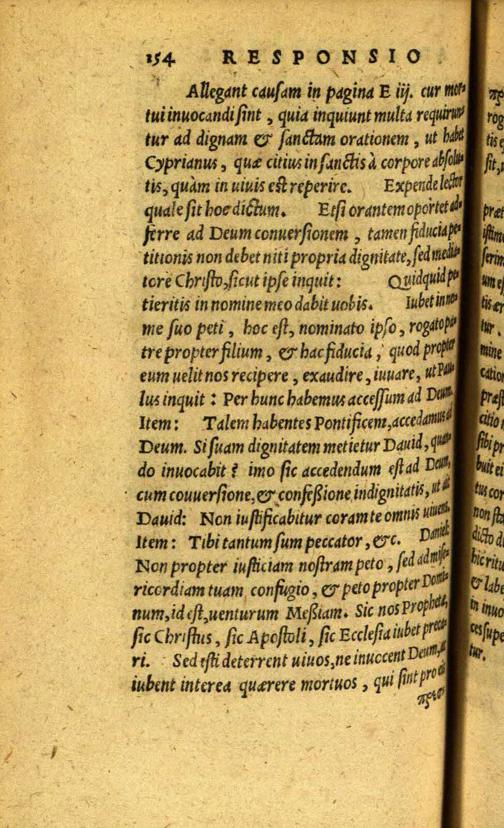 154 RESPONSIO
Allegant causam in pagina E iij. cur mor-
tui inuocandi sint, quia inquiunt multa requirun-
tur ad dignam & sanctam orationem, ut habet
Cyprianus, quæ citius in sanctis à corpore absolu-
tis, quàm in uiuis est reperire. Expende lector
quale sit hoc dictum. Etsi orantem oportet ad-
ferre ad Deum conuersionem, tamen fiducia pe-
titionis non debet niti propria dignitate, sed media-
tore Christo, sicut ipse inquit: Quidquid pe-
tieritis in nomine meo dabit uobis. Iubet in no-
me suo peti, hoc est, nominato ipso, rogato pa-
tre propter filium, & hac fiducia, quod propter
eum uelit nos recipere, exaudire, iuuare, ut Pau-
lus inquit: Per hunc habemus accessum ad Deum.
Item: Talem habentes Pontificem, accedamus ad
Deum. Si suam dignitatem metietur Dauid, quan-
do inuocabit? imo sic accedendum est ad Deum,
cum couuersione, & confeßione indignitatis, ut ait
Dauid: Non iustificabitur coram te omnis uiuens.
Item: Tibi tantum sum peccator, &c. Daniel:
Non propter iusticiam nostram peto, sed ad mise-
ricordiam tuam confugio, & peto propter Domi-
num, id est, uenturum Meßiam. Sic nos Prophetæ,
sic Christus, sic Apostoli, sic Ecclesia iubet preca-
ri. Sed isti deterrent uiuos, ne inuocent Deum, et
iubent interea quærere mortuos, qui sint pro